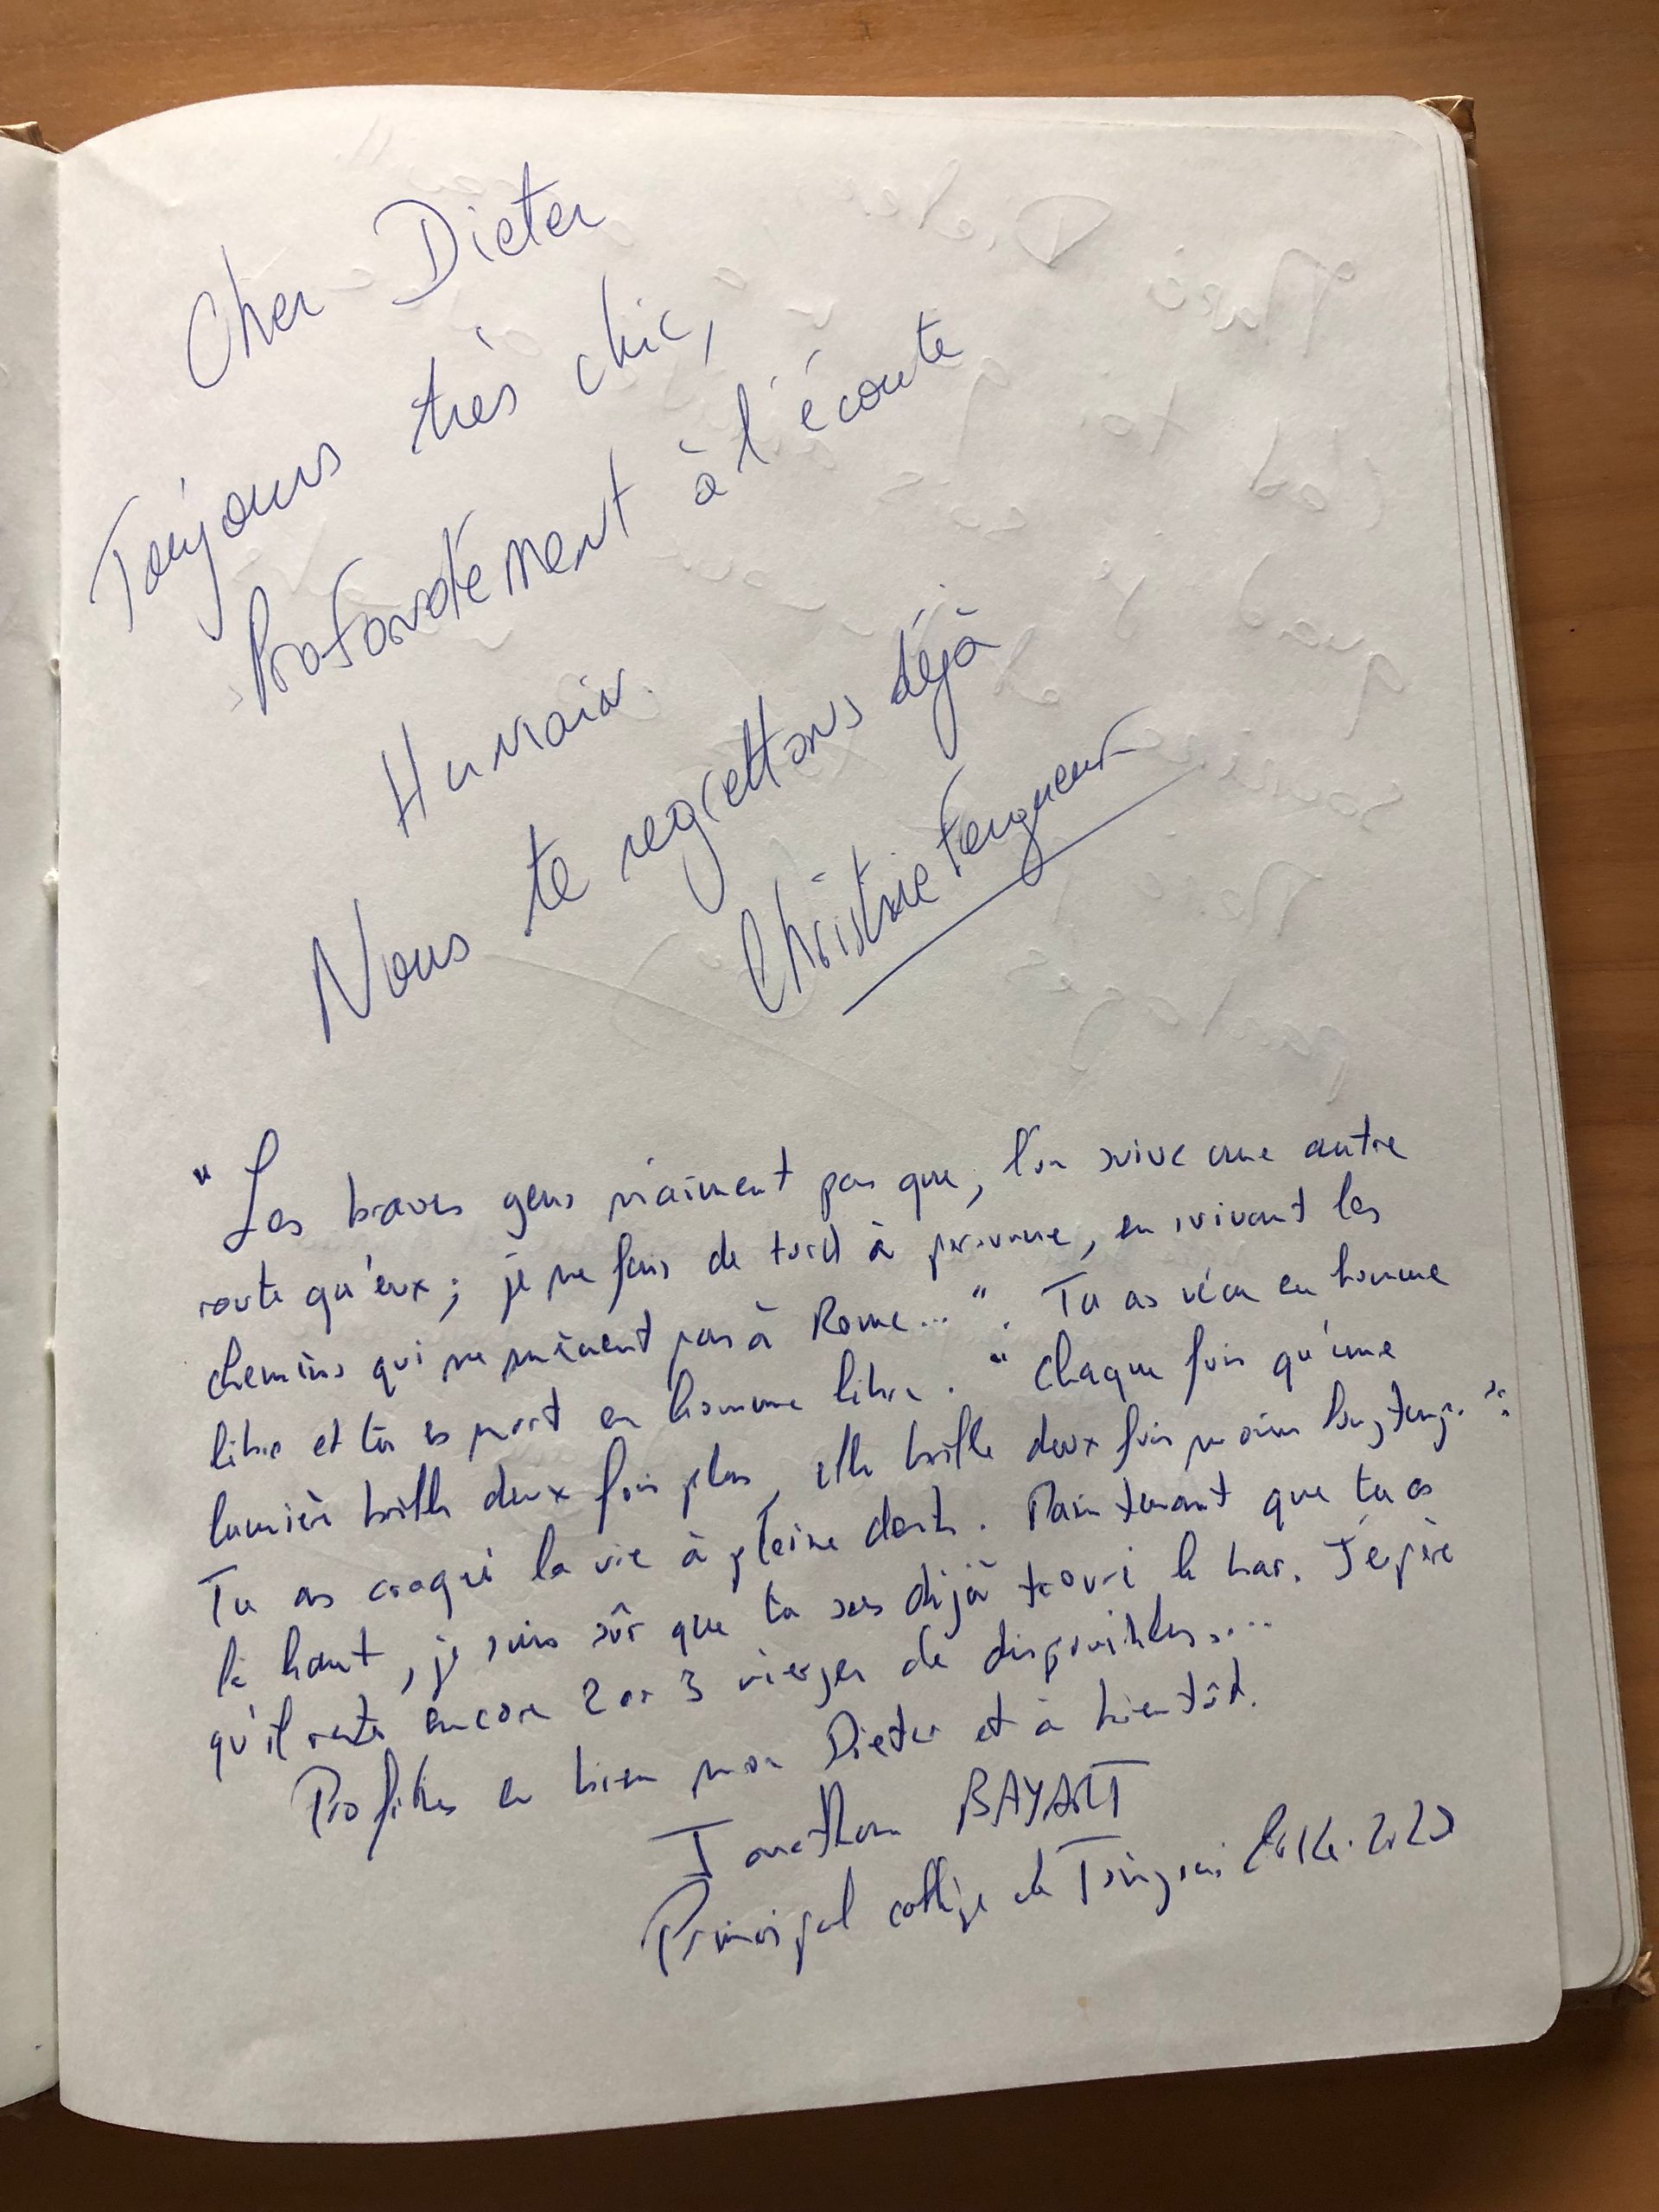 Cher Dieter
Toujours très chic,
Profondément à l'écoute
Humain.
Nous te regrettons déjà
Christine
"Les braves gens n'aiment pas que, l'on suive une autre
route qu'eux; je ne fais de tord à personne, en suivant les
chemins qui ne mènent pas à Rome...". Tu as vécu en homme
libre et tu es mort en homme libre. "Chaque fois qu'une
lumière brille deux fois plus, elle brille deux fois moins longtemps."
Tu as croqué la vie à pleine dents. Maintenant que tu es
là haut, je suis sûr que tu as déjà trouvé le bar. J'espère
qu'il reste encore 2 ou 3 vierges de disponibles....
Profites en bien mon Dieter et à bientôt.
Jonathan BAYART
Principal collège de